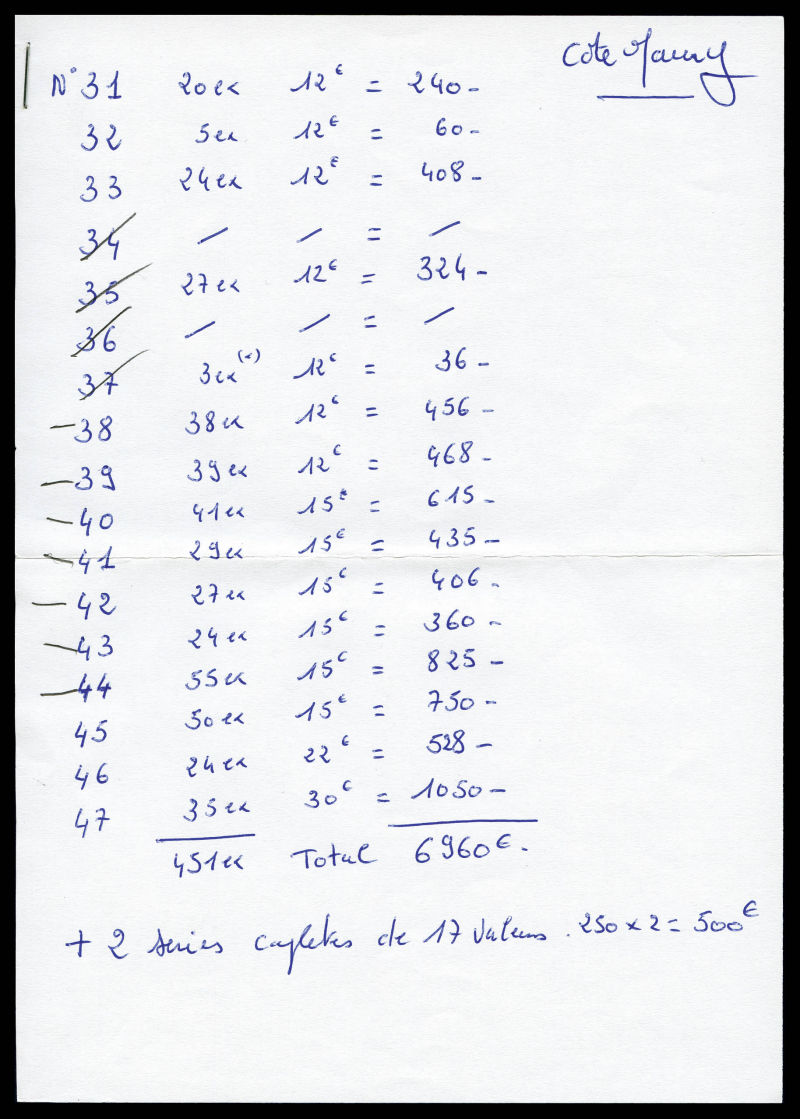 Cote Maury
N° 31 20ex 12€ = 240-
32 5ex 12€ = 60-
33 24ex 12€ = 408-
34 / / = /
35 27ex 12€ = 324-
36 / / = /
37 3ex(*) 12€ = 36-
38 38ex 12€ = 456-
39 39ex 12€ = 468-
40 41ex 15€ = 615-
41 29ex 15€ = 435-
42 27ex 15€ = 406-
43 24ex 15€ = 360-
44 55ex 15€ = 825-
45 50ex 15€ = 750-
46 24ex 22€ = 528-
47 35ex 30€ = 1050-
451ex Total 6960€-
+ 2 séries copletes de 17 valeurs. 250 x 2 = 500€